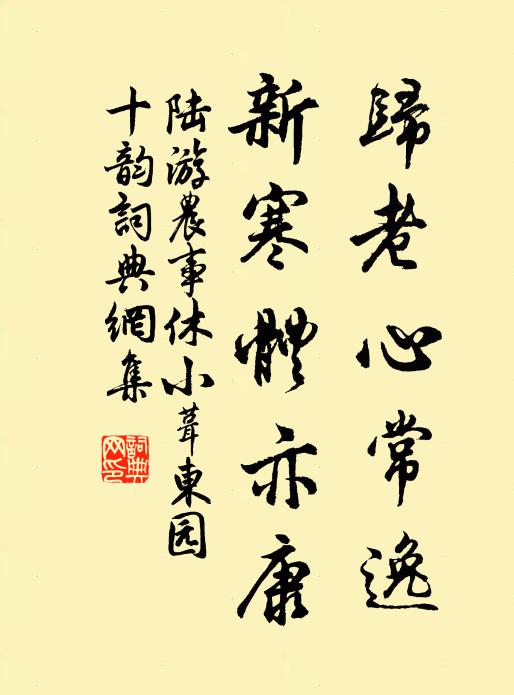 歸老心常逸
新寒體亦康
陆游農事休小葺東园
十韵詞典網集
詞典
网印